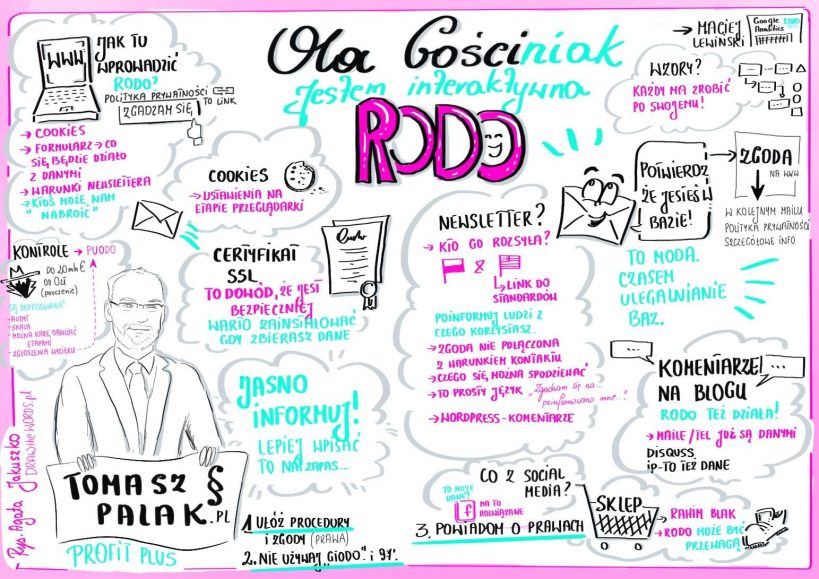 Ola Gościniak
jestem interaktywna
RODO
WWW
JAK TU
WPROWADZIĆ
RODO?
POLITYKA PRYWATNOŚCI
TO LINK
ZGADZAM SIĘ
→ COOKIES
→ FORMULARZ → CO
SIĘ BĘDZIE DZIAŁO
Z DANYMI
→ WARUNKI NEWSLETTERA
→ KTOŚ MOŻE NAM
"NABROIĆ"
COOKIES
→ USTAWIENIA NA
ETAPIE PRZEGLĄDARKI
KONTROLE → PUODO
DO 20 mln €
OD 0 zł
(pouczenie)
SĄ DOPASOWANE!
- AUDYT
- SKALA
- MOŻNA KARĘ OBNIŻAĆ
ETAPAMI
- ZGŁOSZENIA WYCIEKU
CERTYFIKAT
SSL
TO DOWÓD, ŻE JEST
BEZPIECZNIEJ
WARTO ZAINSTALOWAĆ
GDY ZBIERASZ DANE
JASNO
INFORMUJ!
LEPIEJ WPISAĆ
TO NA ZAPAS...
TOMASZ §
PALAK.PL
PROFIT PLUS
Rys. Agata Jakuszko
DRAWTHEWORDS.pl
1. UŁÓŻ PROCEDURY
I ZGODY (PRAWA)
2. NIE UŻYWAJ „GIODO" i 97r.
3. POWIADOM O PRAWACH
NEWSLETTER?
→ KTO GO ROZSYŁA?
&
→ LINK DO
STANDARDÓW
POINFORMUJ LUDZI Z
CZEGO KORZYSTASZ.
→ ZGODA NIE POŁĄCZONA
Z WARUNKIEM KONTAKTU
→ CZEGO SIĘ MOŻNA SPODZIEWAĆ
→ TO PROSTY JĘZYK „Zgadzam się na...
poinformowano mnie..."
→ WORDPRESS - KOMENTARZE
CO Z SOCIAL
MEDIA?
TO MOJE
DANE?
f
MA TO
ROZWIĄZANE
→ MACIEJ
LEWIŃSKI
Google RODO
Analitics
WZORY?
KAŻDY MA ZROBIĆ
PO SWOJEMU!
POTWIERDŹ
ŻE JESTEŚ W
BAZIE!
ZGODA
NA WWW
W KOLEJNYM MAILU
POLITYKA PRYWATNOŚCI
SZCZEGÓŁOWE INFO
TO MODA.
CZASEM
ULEGALNIANIE
BAZ.
KOMENTARZE
NA BLOGU
RODO TEŻ DZIAŁA!
→ MAILE/TEL JUŻ SĄ DANYMI
DISQUSS
IP-TO TEŻ DANE
SKLEP
→ RAHIM BLAK
→ RODO MOŻE BYĆ
PRZEWAGĄ